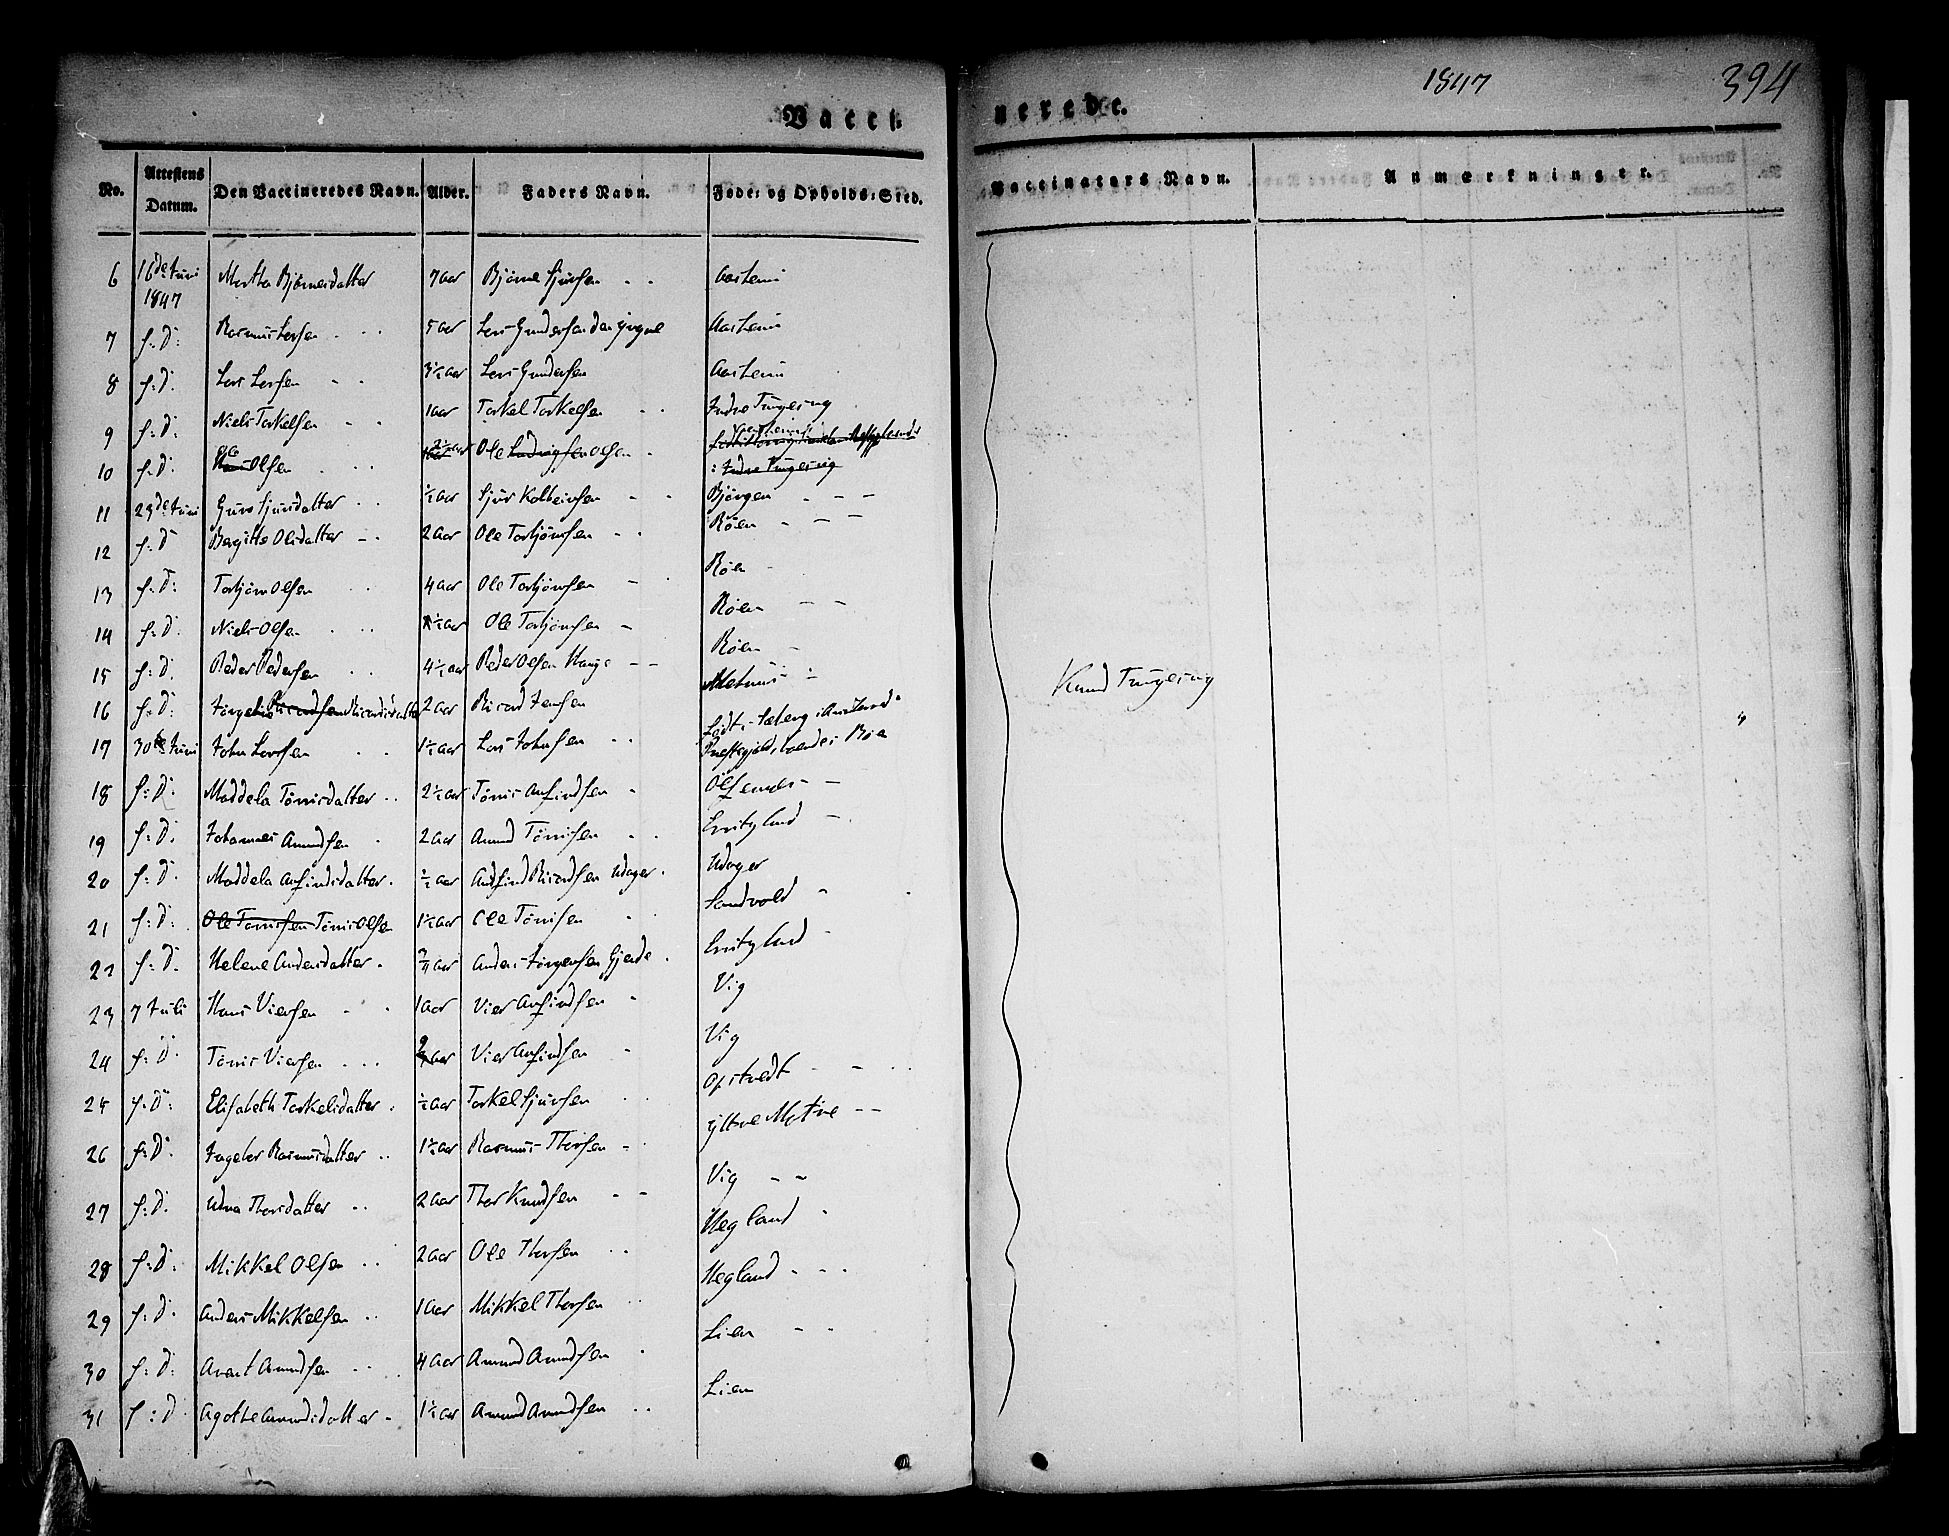 1847
394
Vacci-
nerede.
No. Attestens Datum. Den Vaccineredes Navn. Alder. Faders Navn. Føde- og Opholds-Sted. Vaccinators Navn. Anmærkninger.
6 16de Juni 1847 Martha Bjørnesdatter 7 Aar Bjørne Sjursen
7 s: D: Rasmus Larsen 5 Aar Lars Gundersen den yngre
8 s: D: Lars Larsen 3½ Aar Lars Gundersen
9 s: D: Niels Torkelsen 1 Aar Torkel Torkelsen Indre Tungesvig
10 s: D: Ole Olsen Ole Ludvigsen Olsen
: Indre Tungesvig
11 23de Juni Guro Sjursdatter ½ Aar Sjur Kolbeinsen Bjørgen
12 s: D: Bergitte Olsdatter 2 Aar Ole Torbjørnsen Røen
13 s: D: Torbjørn Olsen 4 Aar Ole Torbjørnsen Røen
14 s: D: Niels Olsen 1½ Aar Ole Torbjørnsen Røen
15 s: D: Peder Pedersen 4½ Aar Peder Olsen Hauge Røen
16 s: D: 2 Aar Ricard Jensen
17 30te Juni John Larsen 1½ Aar Lars Johnsen
Præstegjeld, boende: Røe
18 s: D: Maddela Tønnisdatter 2½ Aar Tønnis Anfindsen Ølfernes
19 s: D: Johannes Amundsen 2 Aar Amund Tønnisen
20 s: D: Maddela Anfindsdatter ½ Aar Anfind Ricardsen Udager Udager
21 s: D: Ole Tønnisen Tønnis Olsen 1½ Aar Ole Tønnisen Sandvold
22 s: D: Helene Andersdatter ¾ Aar Anders Jørgensen Gjerde
23 7 Juli Hans Viersen 1 Aar Vier Anfindsen Vig
24 s: D: Tønnis Viersen Aar Vier Anfindsen Vig
25 s: D: Elisabeth Torkelsdatter ½ Aar Torkel Sjursen Opstvedt
26 s: D: Ingeber Rasmusdatter 1½ Aar Rasmus Thorsen yttre Matre
27 s: D: Udna Thorsdatter 2 Aar Thor Knudsen Vig
28 s: D: Mikkel Olsen 2 Aar Ole Thorsen Hegland
29 s: D: Anders Mikkelsen 1 Aar Mikkel Thorsen Hegland
30 s: D: Amund Amundsen 4 Aar Amund Amundsen Lien
31 s: D: Agothe Amundsdatter 1½ Aar Amund Amundsen Lien
Knud Tungesvig